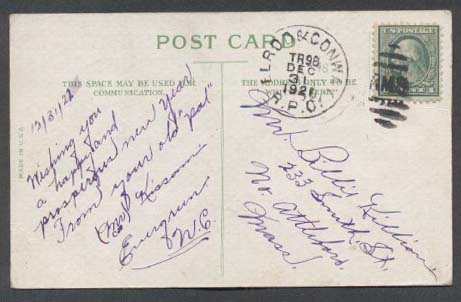 POST CARD
THIS SPACE MAY BE USED FOR
COMMUNICATION.
THE ADDRESS ONLY TO BE
MADE IN U.S.A.
ELROD & CONWAY
TR98
DEC
31
1921
R.P.O.
12/31/21
Wishing you
a happy and
prosperous new Year
From your old "pal"
Kissam
Evergreen
N.C.
Billie
233 Smith St.
No. Attleboro,
Mass.